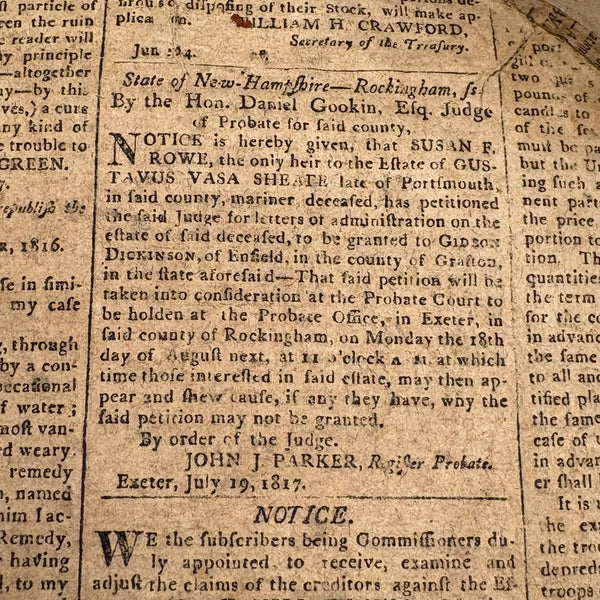 st particle of
en the ruin
e reader will
y principle
—altogether
ny—by this
ves,) a cure
any kind of
e trouble to
GREEN.
7.
republiſh the
R, 1816.
ſe in ſimi-
my caſe
, through
by a con-
becational
f water;
moſt van-
ed weary.
remedy
n, named
him I ac-
Remedy,
r having
d, to my
diſpoſing of their Stock, will make ap-
plica on.
WILLIAM H. CRAWFORD,
Secretary of the Treaſury.
Jun 24.
State of New-Hampſhire—Rockingham, ſs.
By the Hon. Daniel Gookin, Eſq. Judge
of Probate for ſaid county,
NOTICE is hereby given, that SUSAN F.
ROWE, the only heir to the Eſtate of GUS-
TAVUS VASA SHEAFE late of Portſmouth,
in ſaid county, mariner, deceaſed, has petitioned
the ſaid Judge for letters of adminiſtration on the
eſtate of ſaid deceaſed, to be granted to GIDEON
DICKINSON, of Enfield, in the county of Grafton,
in the ſtate aforeſaid—That ſaid petition will be
taken into conſideration at the Probate Court to
be holden at the Probate Office, in Exeter, in
ſaid county of Rockingham, on Monday the 18th
day of Auguſt next, at 11 o'clock A. M. at which
time thoſe intereſted in ſaid eſtate, may then ap-
pear and ſhew cauſe, if any they have, why the
ſaid petition may not be granted.
By order of the Judge.
JOHN J. PARKER, Regiſter Probate.
Exeter, July 19, 1817.
NOTICE.
WE the ſubſcribers being Commiſſioners du-
ly appointed to receive, examine and
adjuſt the claims of the creditors againſt the Eſ-
port
girl
two
pounds of
candles to
of the ſe
muſt be pa
but the U
ing ſuch a
nent parts
the price
portion to
tion. Th
quantities
the term
for the co
in advanc
the ſame
to all and
tified plac
the ſame
caſe of
in advan
er ſhall b
It is
the exa
the tro
depred
troops